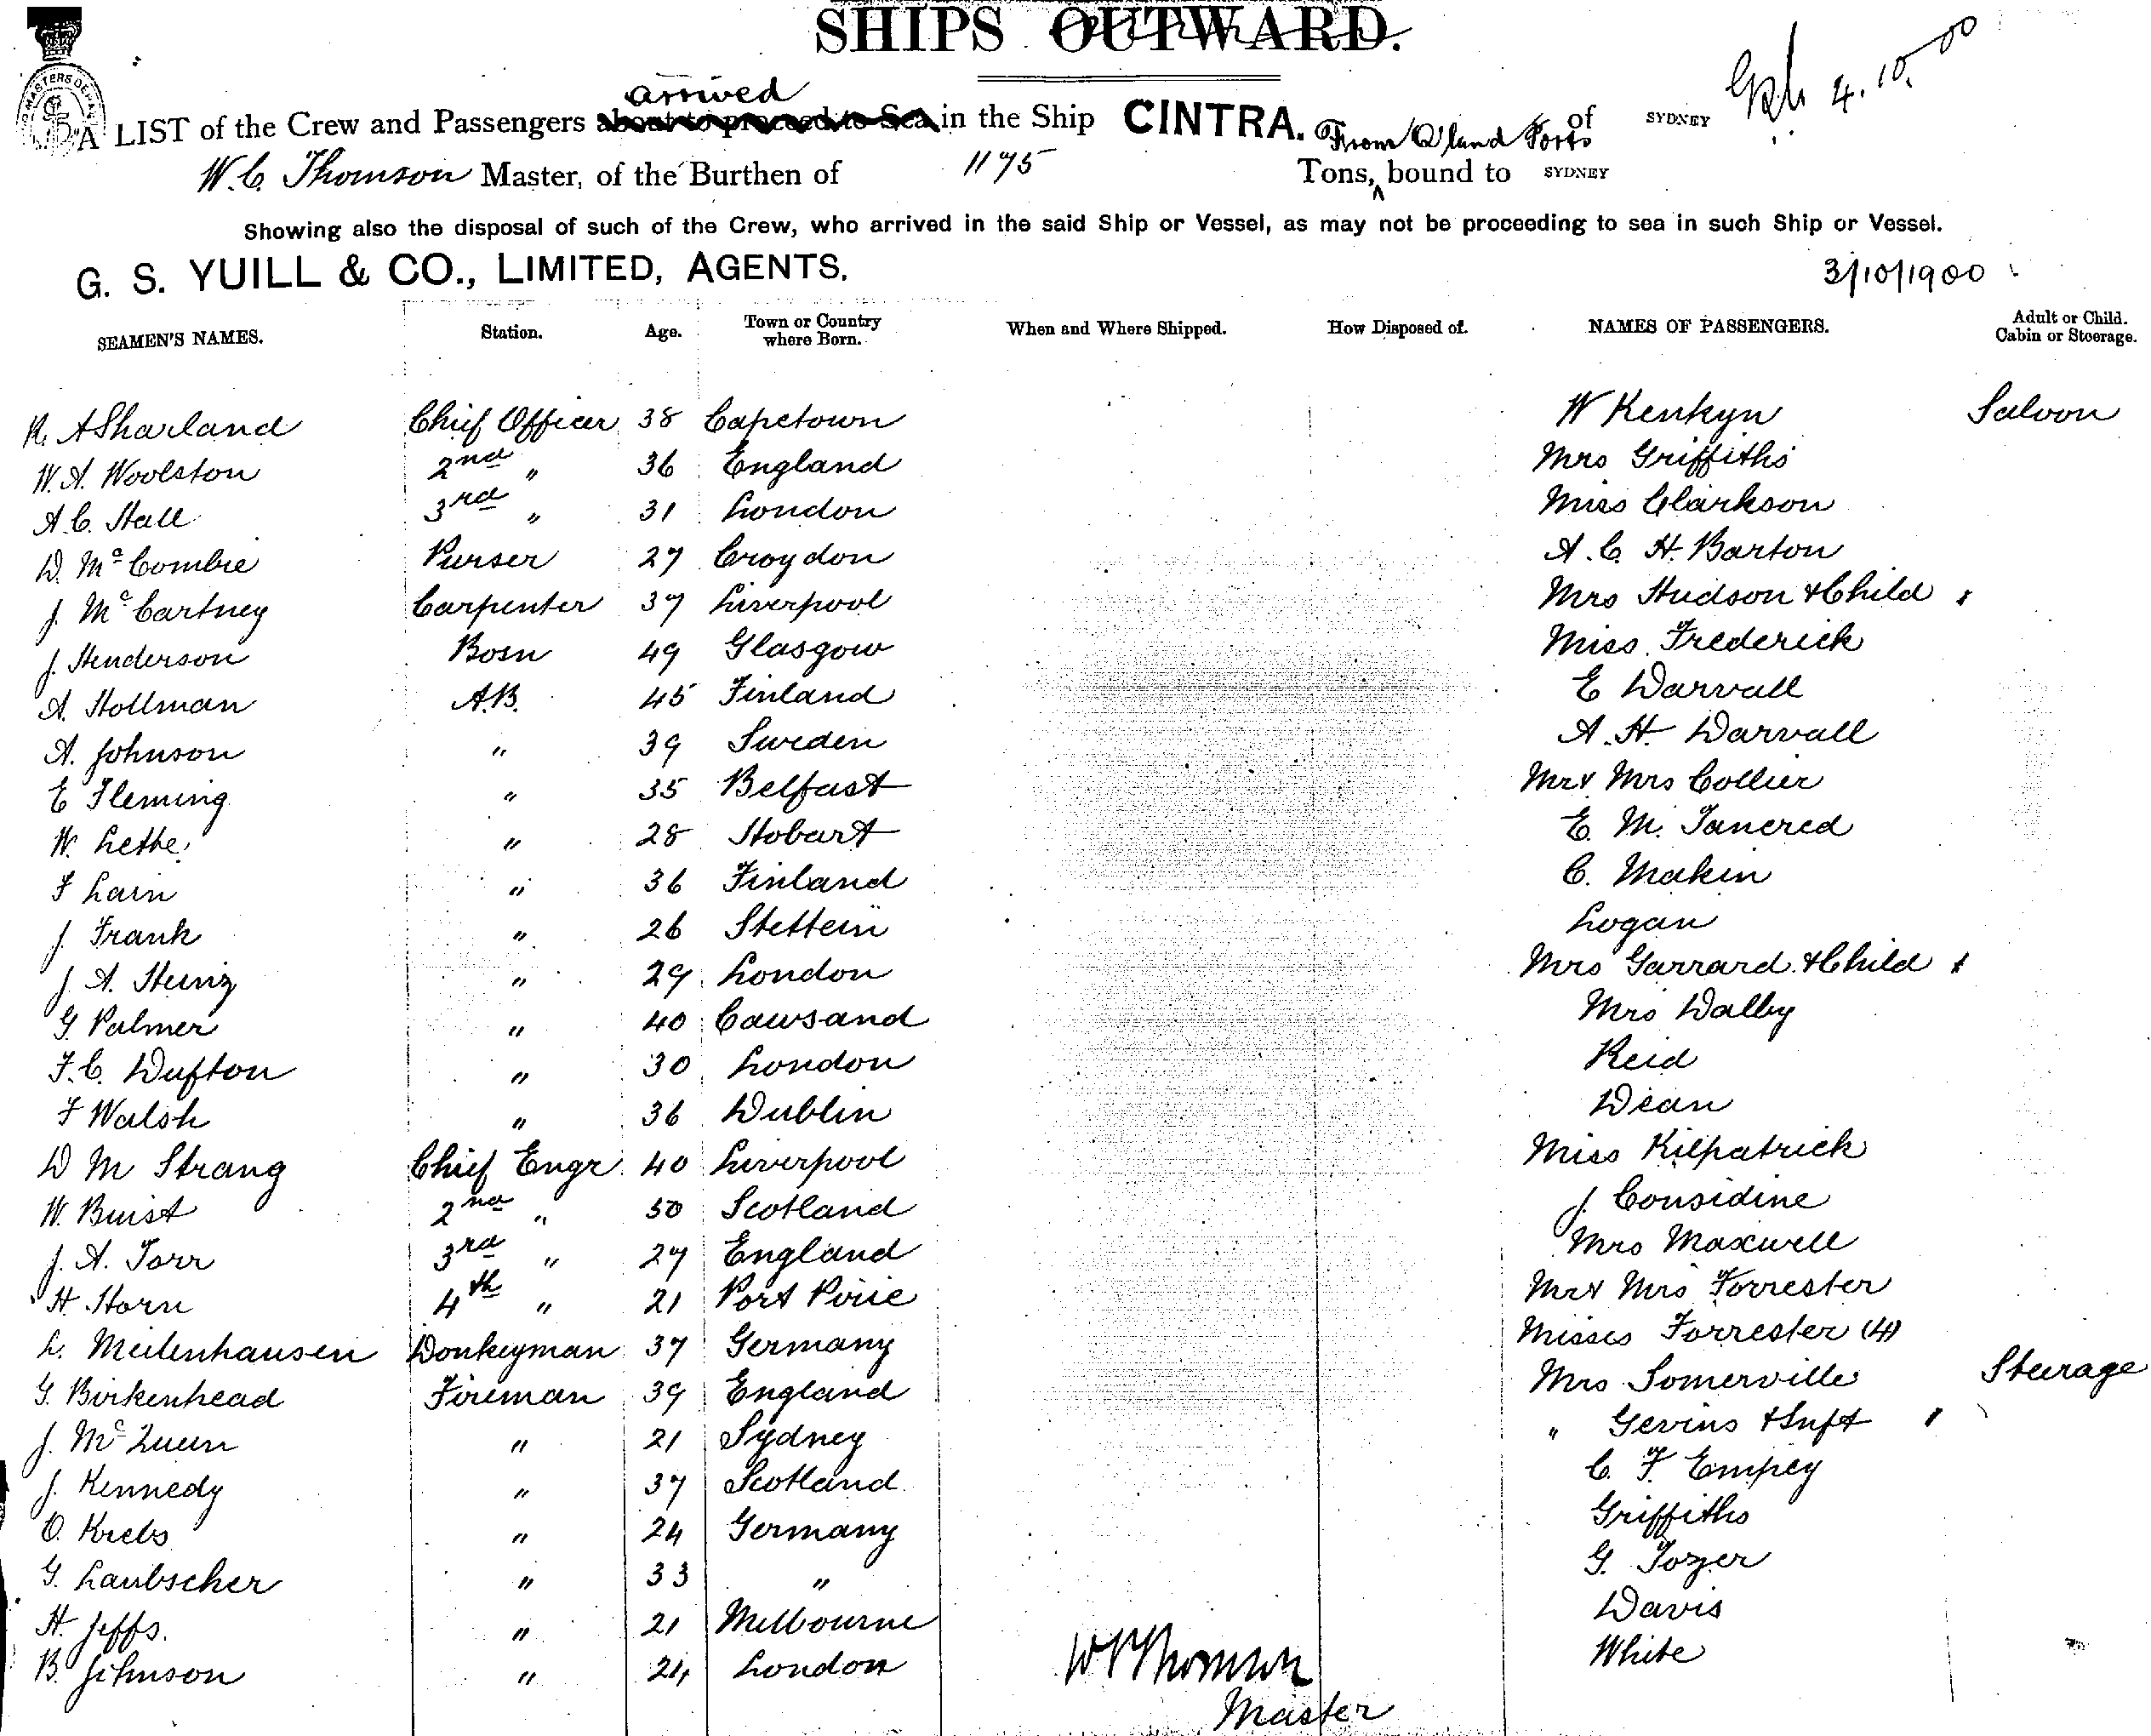 SHIPS OUTWARD.
4.10.00
arrived
A LIST of the Crew and Passengers about to proceed to Sea in the Ship CINTRA. of SYDNEY
From Q'land Ports
W. C. Thomson Master, of the Burthen of 1175 Tons, bound to SYDNEY
Showing also the disposal of such of the Crew, who arrived in the said Ship or Vessel, as may not be proceeding to sea in such Ship or Vessel.
G. S. YUILL & CO., LIMITED, AGENTS.
3/10/1900
SEAMEN'S NAMES. Station. Age. Town or Country where Born. When and Where Shipped. How Disposed of. NAMES OF PASSENGERS. Adult or Child. Cabin or Steerage.
R. A Sharland Chief Officer 38 Capetown W Kenkyn Saloon
W. A. Woolston 2nd " 36 England Mrs Griffiths
A. C. Hall 3rd " 31 London Miss Clarkson
D. McCombie Purser 27 Croydon A. C. H. Barton
J. McCartney Carpenter 37 Liverpool Mrs Hudson & Child
J. Henderson Bosn 49 Glasgow Miss Frederick
A. Hollman A.B. 45 Finland E Darvall
A. Johnson " 39 Sweden A. H. Darvall
E Fleming " 35 Belfast Mr & Mrs Collier
W. Lethe " 28 Hobart E. M. Tancred
F Lain " 36 Finland C. Makin
J. Frank " 26 Stettein Logan
J. A. Heinz " 29 London Mrs Garrard & Child
G. Palmer " 40 Cawsand Mrs Dalby
F. C. Dufton " 30 London Reid
F Walsh " 36 Dublin Dean
D M Strang Chief Engr. 40 Liverpool Miss Kilpatrick
W. Buist 2nd " 50 Scotland J. Considine
J. A. Torr 3rd " 27 England Mrs Maxwell
H. Horn 4th " 21 Port Pirie Mr & Mrs Forrester
L. Meilenhausen Donkeyman 37 Germany Misses Forrester (4)
G. Birkenhead Fireman 39 England Mrs Somerville Steerage
J. McQueen " 21 Sydney " Gevins & Inft
J. Kennedy " 37 Scotland C. F. Empey
O. Krebs " 24 Germany Griffiths
G. Laubscher " 33 " G. Tozer
H. Jeffs. " 21 Melbourne Davis
B. Johnson " 24 London White
W C Thomson
Master